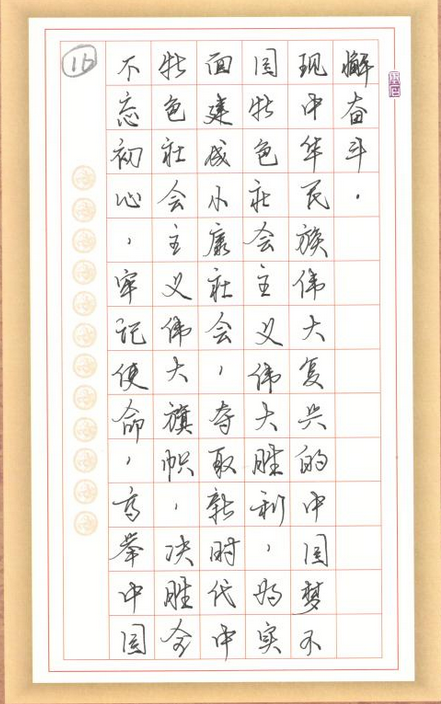 16
不忘初心，牢记使命，高举中国
特色社会主义伟大旗帜，决胜全
面建成小康社会，夺取新时代中
国特色社会主义伟大胜利，为实
现中华民族伟大复兴的中国梦不
懈奋斗.